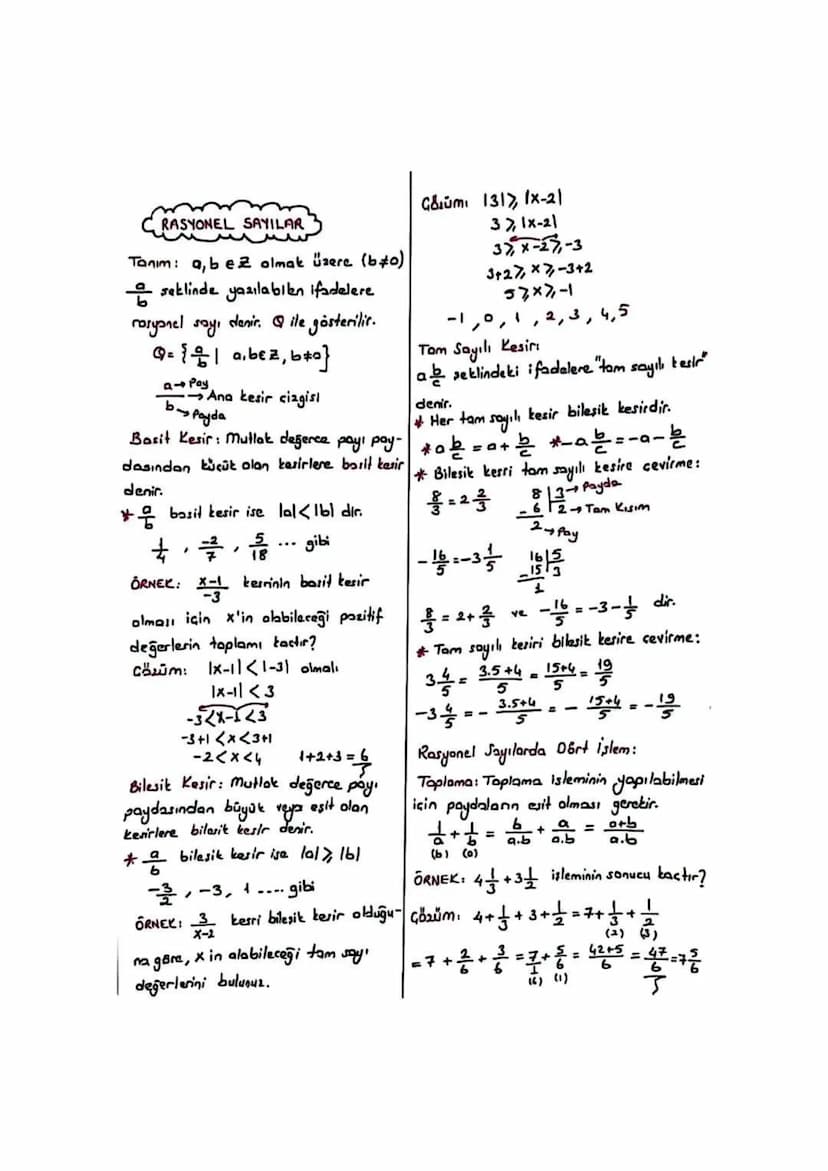 RASYONEL SAYILAR
Tanım: a,b ∈ Z olmak üzere (b≠0)
a/b seklinde yazılabilen ifadelere
rasyonel sayı denir. Q ile gösterilir.
Q = {a/b | a,b∈Z, b≠0}
a → Pay
→ Ana kesir cizgisi
b → Payda
Basit Kesir: Mutlak değerce payı pay-
dasından kücük olan kesirlere basit kesir
denir.
* a/b basit kesir ise |a|<|b| dir.
1/4 , -2/7 , 5/18 ... gibi
ÖRNEK: x-1/-3 kesrinin basit kesir
olması için x'in alabileceği pozitif
değerlerin toplamı kactır?
Cözüm: |x-1|<|-3| olmalı
|x-1| < 3
-3<x-1<3
-3+1<x<3+1
-2<x<4 1+2+3=6
Bilesik Kesir: Mutlak değerce payı
paydasından büyük veya eşit olan
kesirlere bilesik kesir denir.
* a/b bilesik kesir ise |a|⩾|b|
-3/2 , -3, 1 .... gibi
ÖRNEK: 3/x-2 kesri bilesik kesir olduğu-
na göre, x in alabileceği tam sayı
değerlerini bulunuz.
Cözüm: |3|⩾|x-2|
3⩾|x-2|
3⩾x-2⩾-3
3+2⩾x⩾-3+2
5⩾x⩾-1
-1 , 0 , 1 , 2 , 3 , 4, 5
Tam Sayılı Kesir:
a b/c seklindeki ifadelere "tam sayılı kesir"
denir.
* Her tam sayılı kesir bilesik kesirdir.
* a b/c = a + b/c * -a b/c = -a - b/c
* Bilesik kesri tam sayılı kesire cevirme:
8/3 = 2 2/3 8 | 3 → Payda
- 6 | 2 → Tam Kısım
2 → Pay
-16/5 = -3 1/5 16 | 5
- 15 | 3
1
8/3 = 2 + 2/3 ve -16/5 = -3 - 1/5 dir.
* Tam sayılı kesiri bilesik kesire cevirme:
3 4/5 = 3.5+4/5 = 15+4/5 = 19/5
-3 4/5 = - 3.5+4/5 = - 15+4/5 = - 19/5
Rasyonel Sayılarda Dört İşlem:
Toplama: Toplama isleminin yapılabilmesi
için paydaların esit olması gerekir.
1/a + 1/b = b/a.b + a/a.b = a+b/a.b
(b) (a)
ÖRNEK: 4 1/3 + 3 1/2 işleminin sonucu kactır?
Cözüm: 4 + 1/3 + 3 + 1/2 = 7 + 1/3 + 1/2
(2) (3)
= 7 + 2/6 + 3/6 = 7/1 + 5/6 = 42+5/6 = 47/6 = 7 5/6
(6) (1)